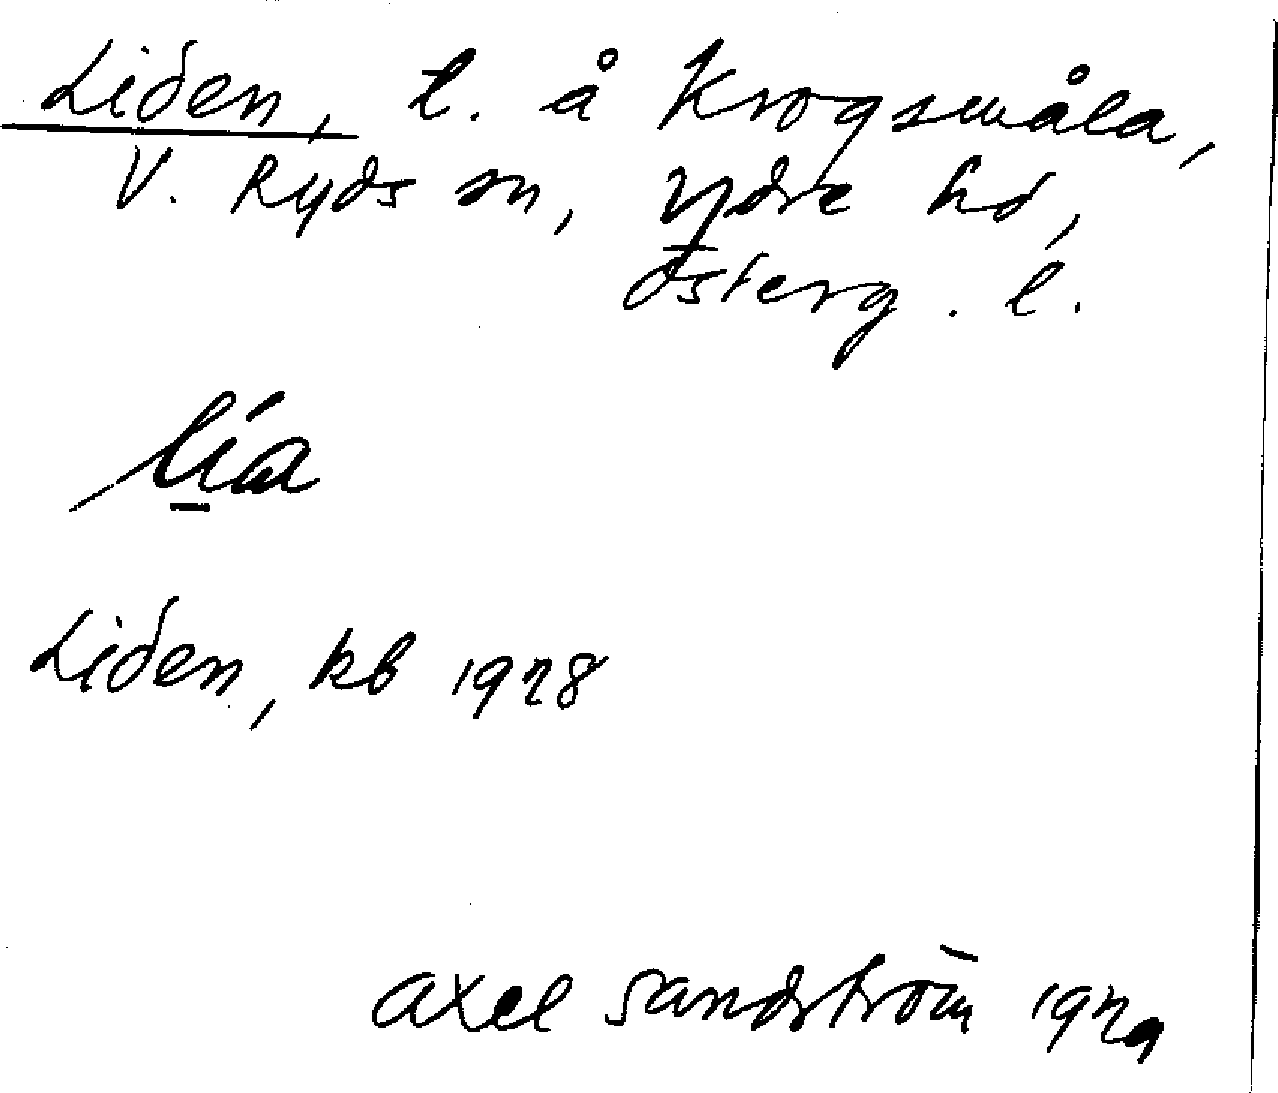 Liden, l. å Krogsmåla,
V. Ryds sn, Ydre hd,
Österg. l.
lía
Liden, kb 1928
Axel Sandström 1929